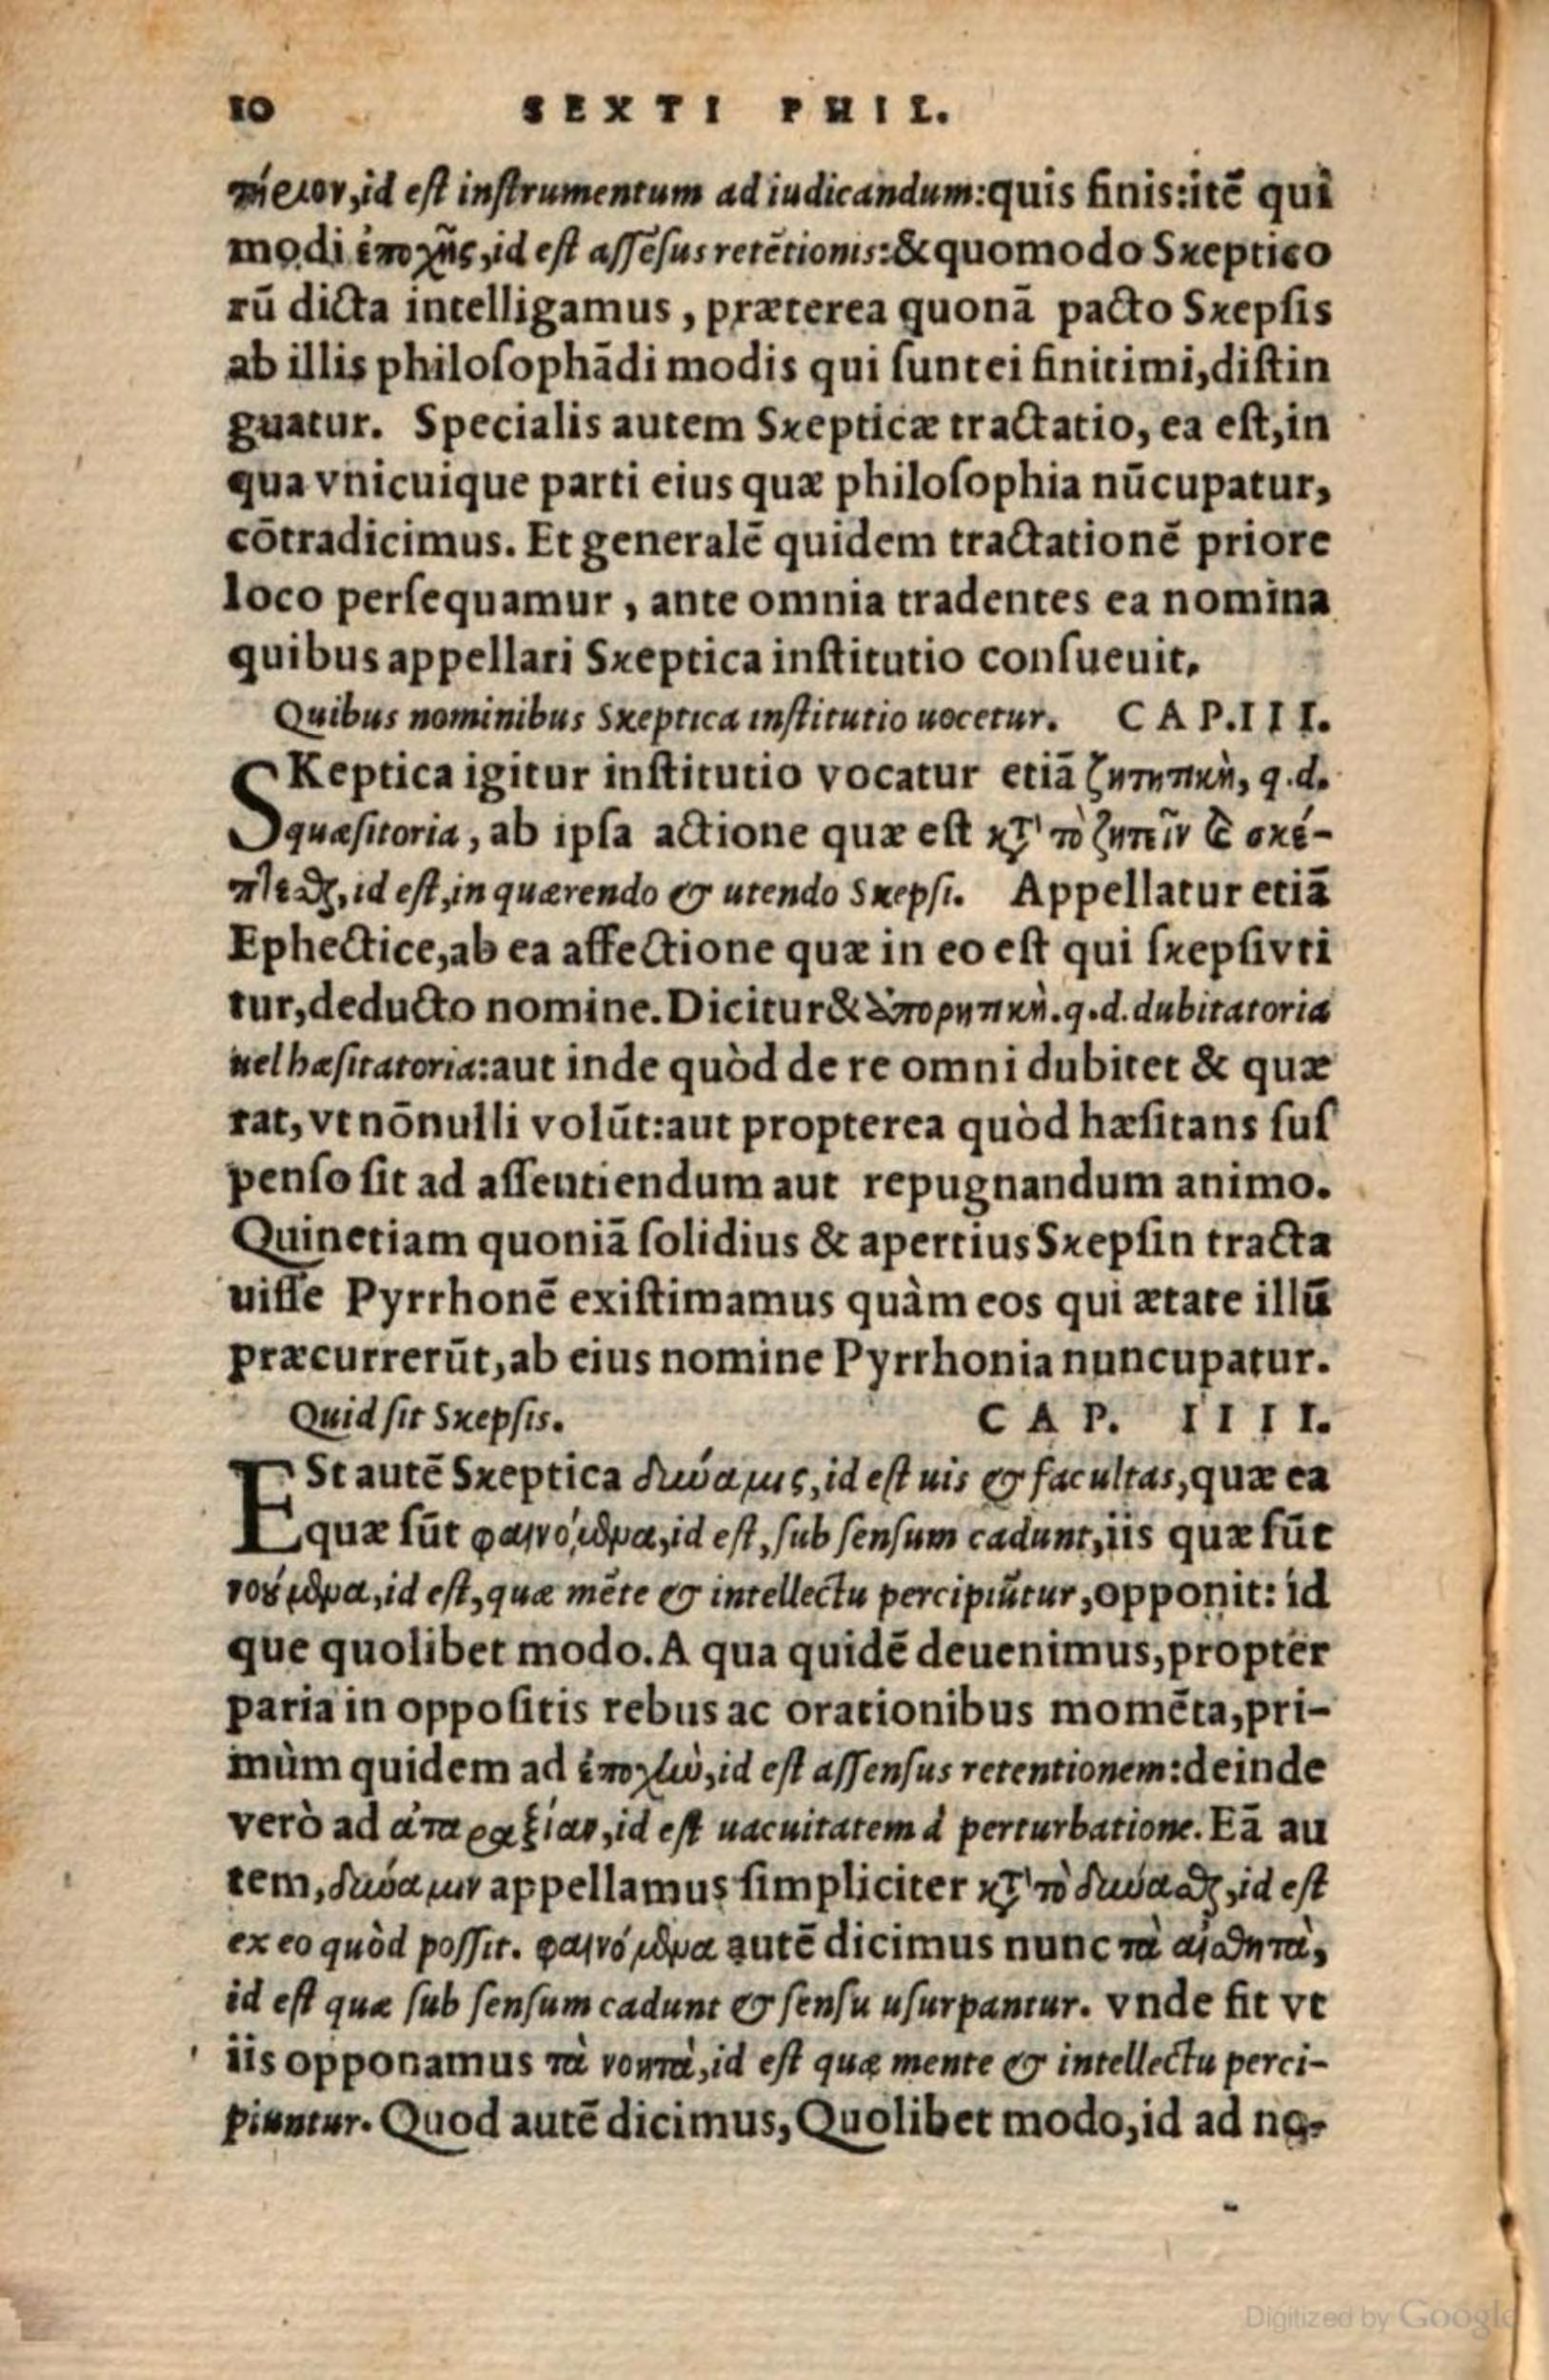 10 SEXTI PHIL.
τήριον, id eſt inſtrumentum ad iudicandum: quis finis: itē qui
modi ἐποχῆς, id eſt aſſēſus retētionis: & quomodo Sκeptico
rū dicta intelligamus, præterea quonā pacto Sκepſis
ab illis philoſophādi modis qui ſunt ei finitimi, diſtin
guatur. Specialis autem Sκepticæ tractatio, ea eſt, in
qua vnicuique parti eius quæ philoſophia nūcupatur,
cōtradicimus. Et generalē quidem tractationē priore
loco perſequamur, ante omnia tradentes ea nomina
quibus appellari Sκeptica inſtitutio conſueuit.
Quibus nominibus Sκeptica inſtitutio uocetur. CAP. III.
SKeptica igitur inſtitutio vocatur etiā ζητητικὴ, q.d.
quæſitoria, ab ipſa actione quæ eſt κατὰ τὸ ζητεῖν καὶ σκέ-
πτεσθαι, id eſt, in quærendo & utendo Sκepſi. Appellatur etiā
Ephectice, ab ea affectione quæ in eo eſt qui ſκepſi vti
tur, deducto nomine. Dicitur & ἀπορητικὴ. q.d. dubitatoria
uel hæſitatoria: aut inde quòd de re omni dubitet & quæ
rat, vt nōnulli volūt: aut propterea quòd hæſitans ſuſ
penſo ſit ad aſſeutiendum aut repugnandum animo.
Quinetiam quoniā ſolidius & apertius Sκepſin tracta
uiſſe Pyrrhonē exiſtimamus quàm eos qui ætate illū
præcurrerūt, ab eius nomine Pyrrhonia nuncupatur.
Quid ſit Sκepſis. CAP. IIII.
ESt autē Sκeptica δύναμις, id eſt uis & facultas, quæ ea
quæ ſūt φαινόμενα, id eſt, ſub ſenſum cadunt, iis quæ ſūt
νούμενα, id eſt, quæ mēte & intellectu percipiūtur, opponit: id
que quolibet modo. A qua quidē deuenimus, propter
paria in oppoſitis rebus ac orationibus momēta, pri-
mùm quidem ad ἐποχὴν, id eſt aſſenſus retentionem: deinde
verò ad ἀταραξίαν, id eſt uacuitatem à perturbatione. Eā au
tem, δύναμιν appellamus ſimpliciter κατὰ τὸ δύνασθαι, id eſt
ex eo quòd poſſit. φαινόμενα autē dicimus nunc τὰ αἰσθητὰ,
id eſt quæ ſub ſenſum cadunt & ſenſu uſurpantur. vnde fit vt
iis opponamus τὰ νοητὰ, id eſt quæ mente & intellectu perci-
piuntur. Quod autē dicimus, Quolibet modo, id ad no-
Digitized by Google